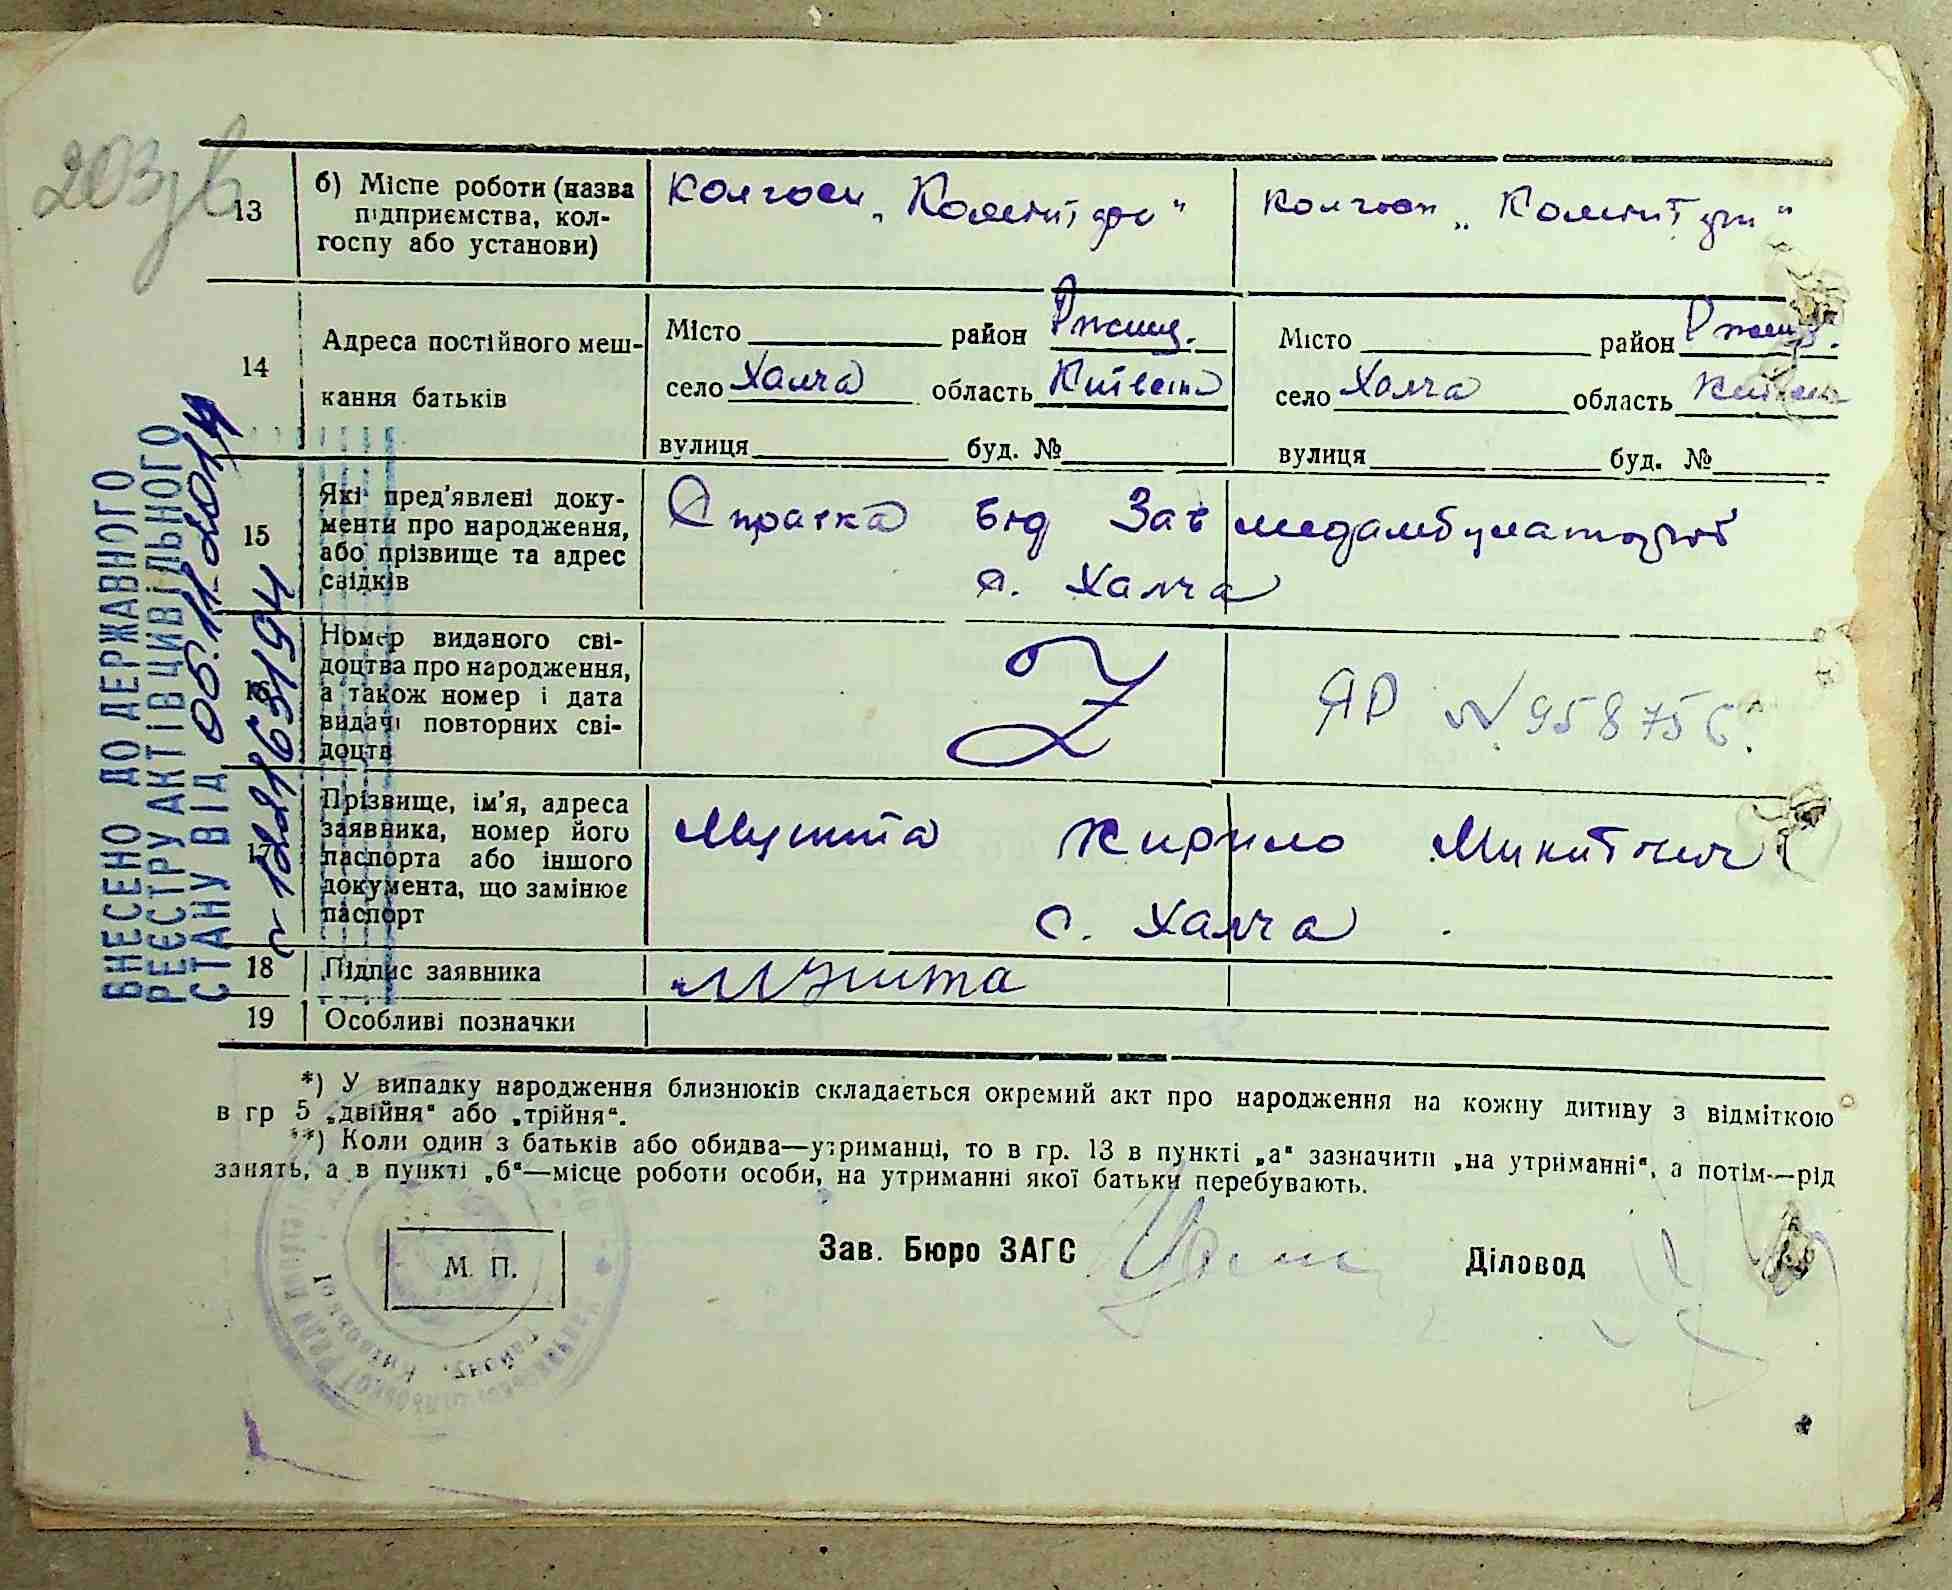 203зв
13
б) Місце роботи (назва
підприємства, кол-
госпу або установи)
колгосп „Комінтерн“
колгосп „Комінтерн“
14
Адреса постійного меш-
кання батьків
Місто район Ржищ.
село Халча область Київська
вулиця буд. №
Місто район Ржищ.
село Халча область Київськ
вулиця буд. №
15
Які пред'явлені доку-
менти про народження,
або прізвище та адрес
свідків
Справка від Зав медамбулаторії
с. Халча
16
Номер виданого сві-
доцтва про народження,
а також номер і дата
видачі повторних сві-
доцтв
ЯР № 958756
17
Прізвище, ім'я, адреса
заявника, номер його
паспорта або іншого
документа, що замінює
паспорт
Мушта Кирило Микитович
с. Халча
18
Підпис заявника
Мушта
19
Особливі позначки
*) У випадку народження близнюків складається окремий акт про народження на кожну дитину з відміткою
в гр 5 „двійня“ або „трійня“.
**) Коли один з батьків або обидва—утриманці, то в гр. 13 в пункті „а“ зазначити „на утриманні“, а потім—рід
занять, а в пункті „б“—місце роботи особи, на утриманні якої батьки перебувають.
М. П.
Зав. Бюро ЗАГС
Діловод
ВНЕСЕНО ДО ДЕРЖАВНОГО
РЕЄСТРУ АКТІВ ЦИВІЛЬНОГО
СТАНУ ВІД 06.11.2014